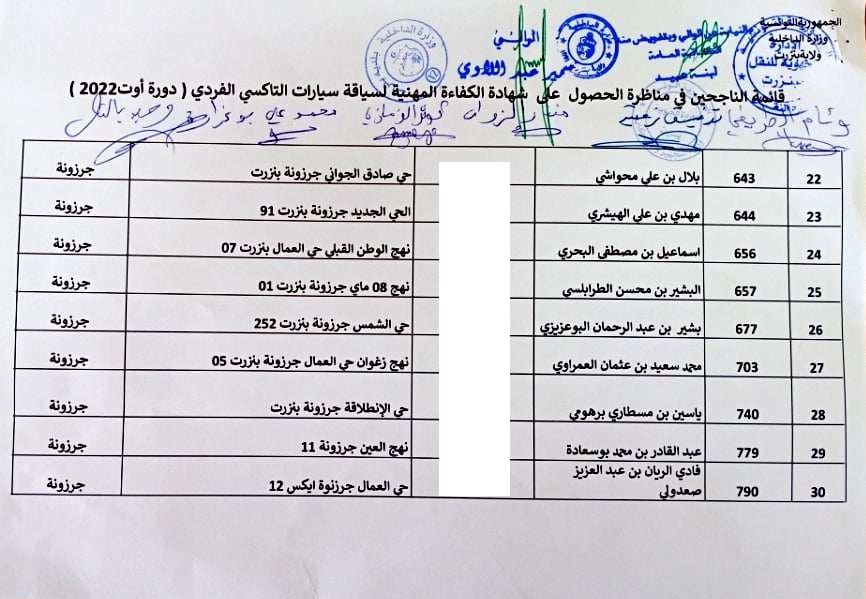 الجمهورية التونسية
وزارة الداخلية
ولاية بنزرت
الوالي
سمير عبد اللاوي
قائمة الناجحين في مناظرة الحصول على شهادة الكفاءة المهنية لسياقة سيارات التاكسي الفردي ( دورة أوت2022 )
22 643 بلال بن علي محواشي حي صادق الجواني جرزونة بنزرت جرزونة
23 644 مهدي بن علي الهيشري الحي الجديد جرزونة بنزرت 91 جرزونة
24 656 اسماعيل بن مصطفى البحري نهج الوطن القبلي حي العمال بنزرت 07 جرزونة
25 657 البشير بن محسن الطرابلسي نهج 08 ماي جرزونة بنزرت 01 جرزونة
26 677 بشير بن عبد الرحمان البوعزيزي حي الشمس جرزونة بنزرت 252 جرزونة
27 703 محمد سعيد بن عثمان العمراوي نهج زغوان حي العمال جرزونة بنزرت 05 جرزونة
28 740 ياسين بن مسطاري برهومي حي الإنطلاقة جرزونة بنزرت جرزونة
29 779 عبد القادر بن محمد بوسعادة نهج العين جرزونة 11 جرزونة
30 790 فادي الريان بن عبد العزيز صعدولي حي العمال جرزنوة ايكس 12 جرزونة